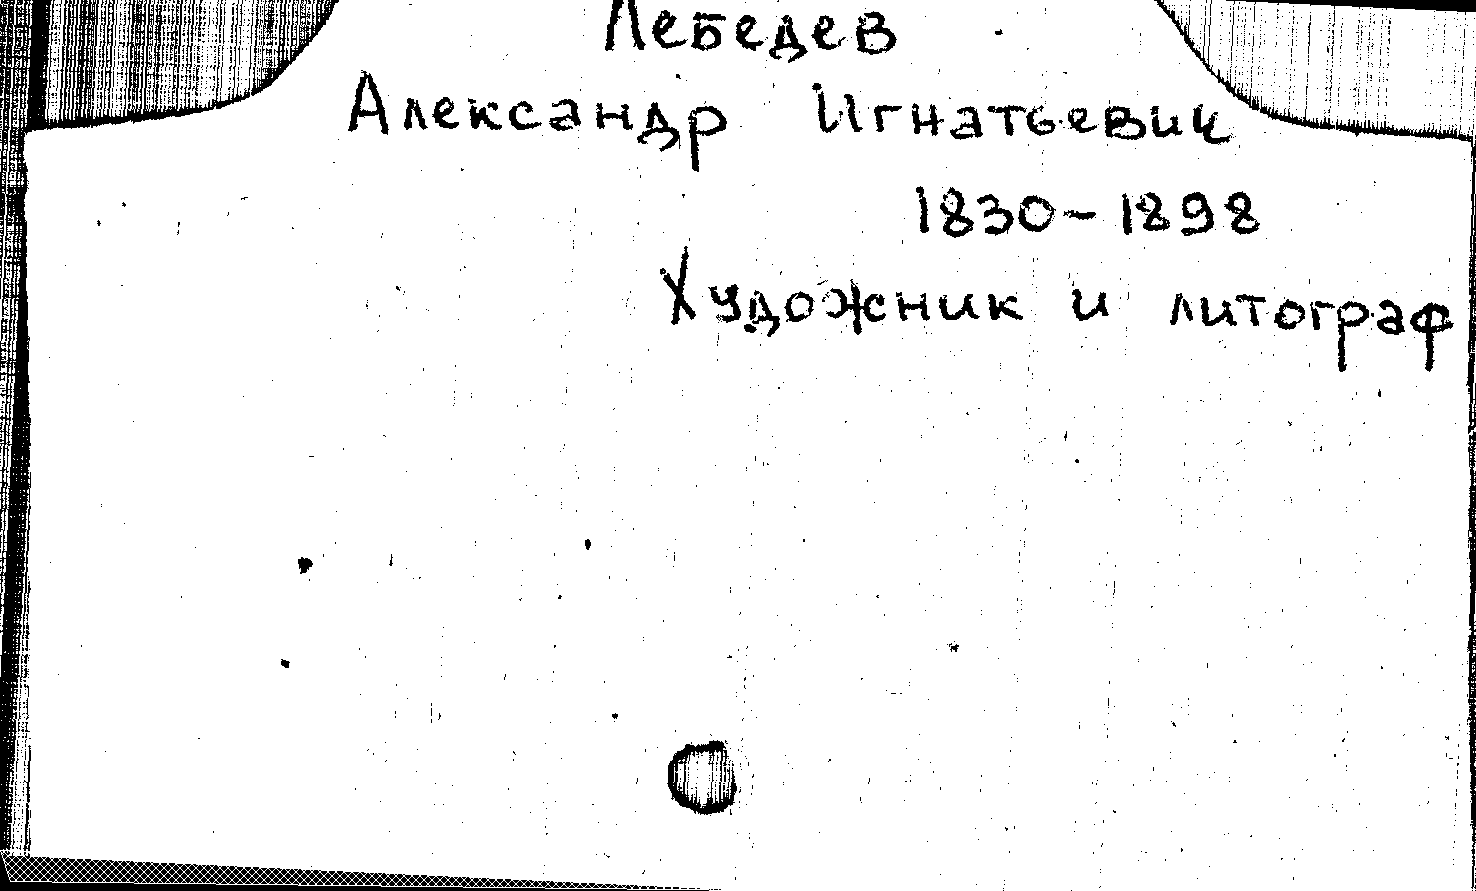 Лебедев
Александр Игнатьевич
1830-1898
Художник и литограф